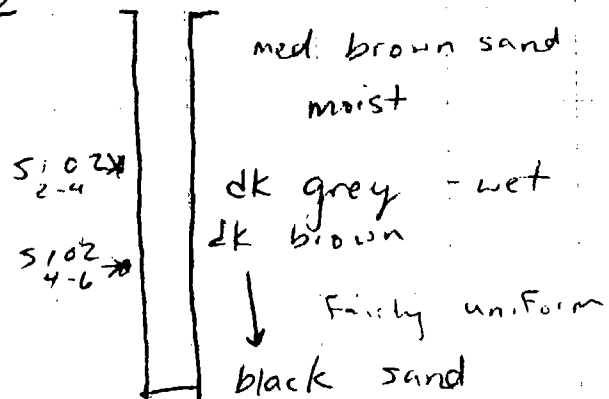 med. brown sand
moist
S102
2-4
dk grey - wet
dk brown
S102
4-6
Fairly uniform
black sand